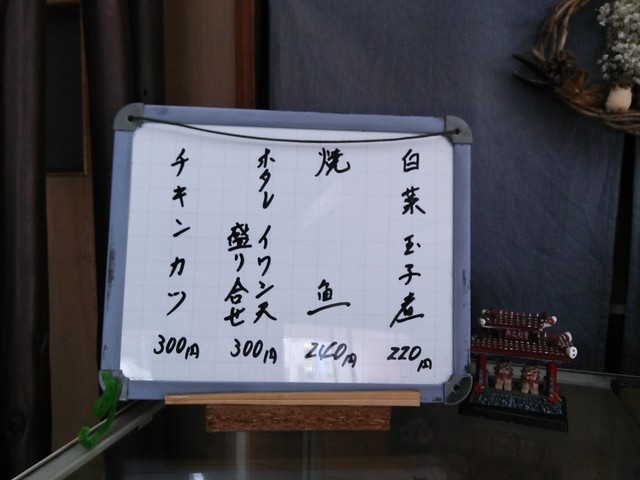 白菜玉子煮
220円
焼魚
240円
ホタレイワシ天
盛り合せ
300円
チキンカツ
300円